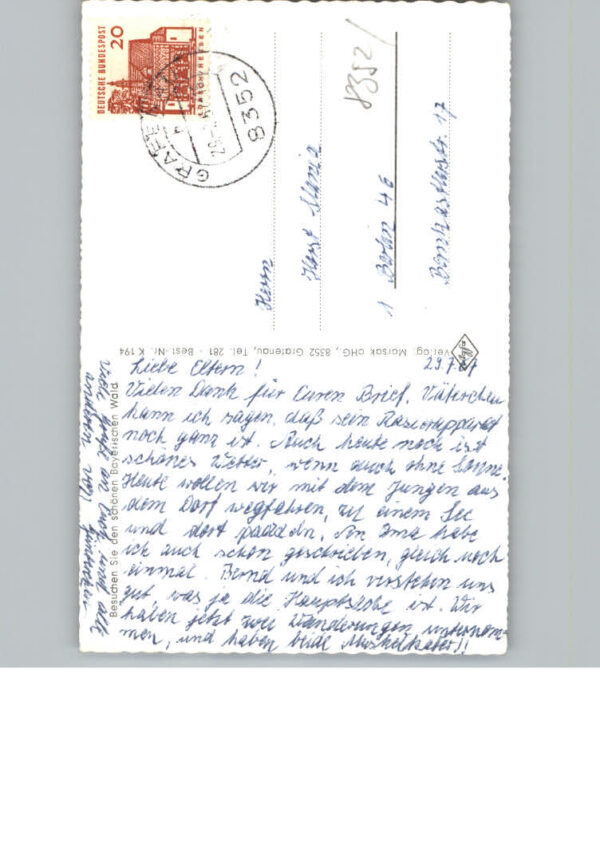 DEUTSCHE BUNDESPOST
20
LORSCH/HESSEN
GRAFENAU
8352
8352/
Herrn
Horst
1 Berlin 46
17
Verlag: Marsak oHG, 8352 Grafenau, Tel. 281 - Best.-Nr. K 194
Besuchen Sie den schönen Bayerischen Wald
29.7.67
Liebe Eltern!
Vielen Dank für Euren Brief. Väterchen
kann ich sagen, daß sein Rasierapparat
noch ganz ist. Auch heute noch ist
schönes Wetter, wenn auch ohne Sonne.
Heute wollen wir mit dem Jungen aus
dem Dorf wegfahren, zu einem See
und dort paddeln. An Ima habe
ich auch schon geschrieben, gleich noch
einmal. Bernd und ich verstehen uns
gut, was ja die Hauptsache ist. Wir
haben jetzt zwei Wanderungen unternom-
men, und haben beide Muskelkater!!
Viele Grüße an Euch und alle
anderen von